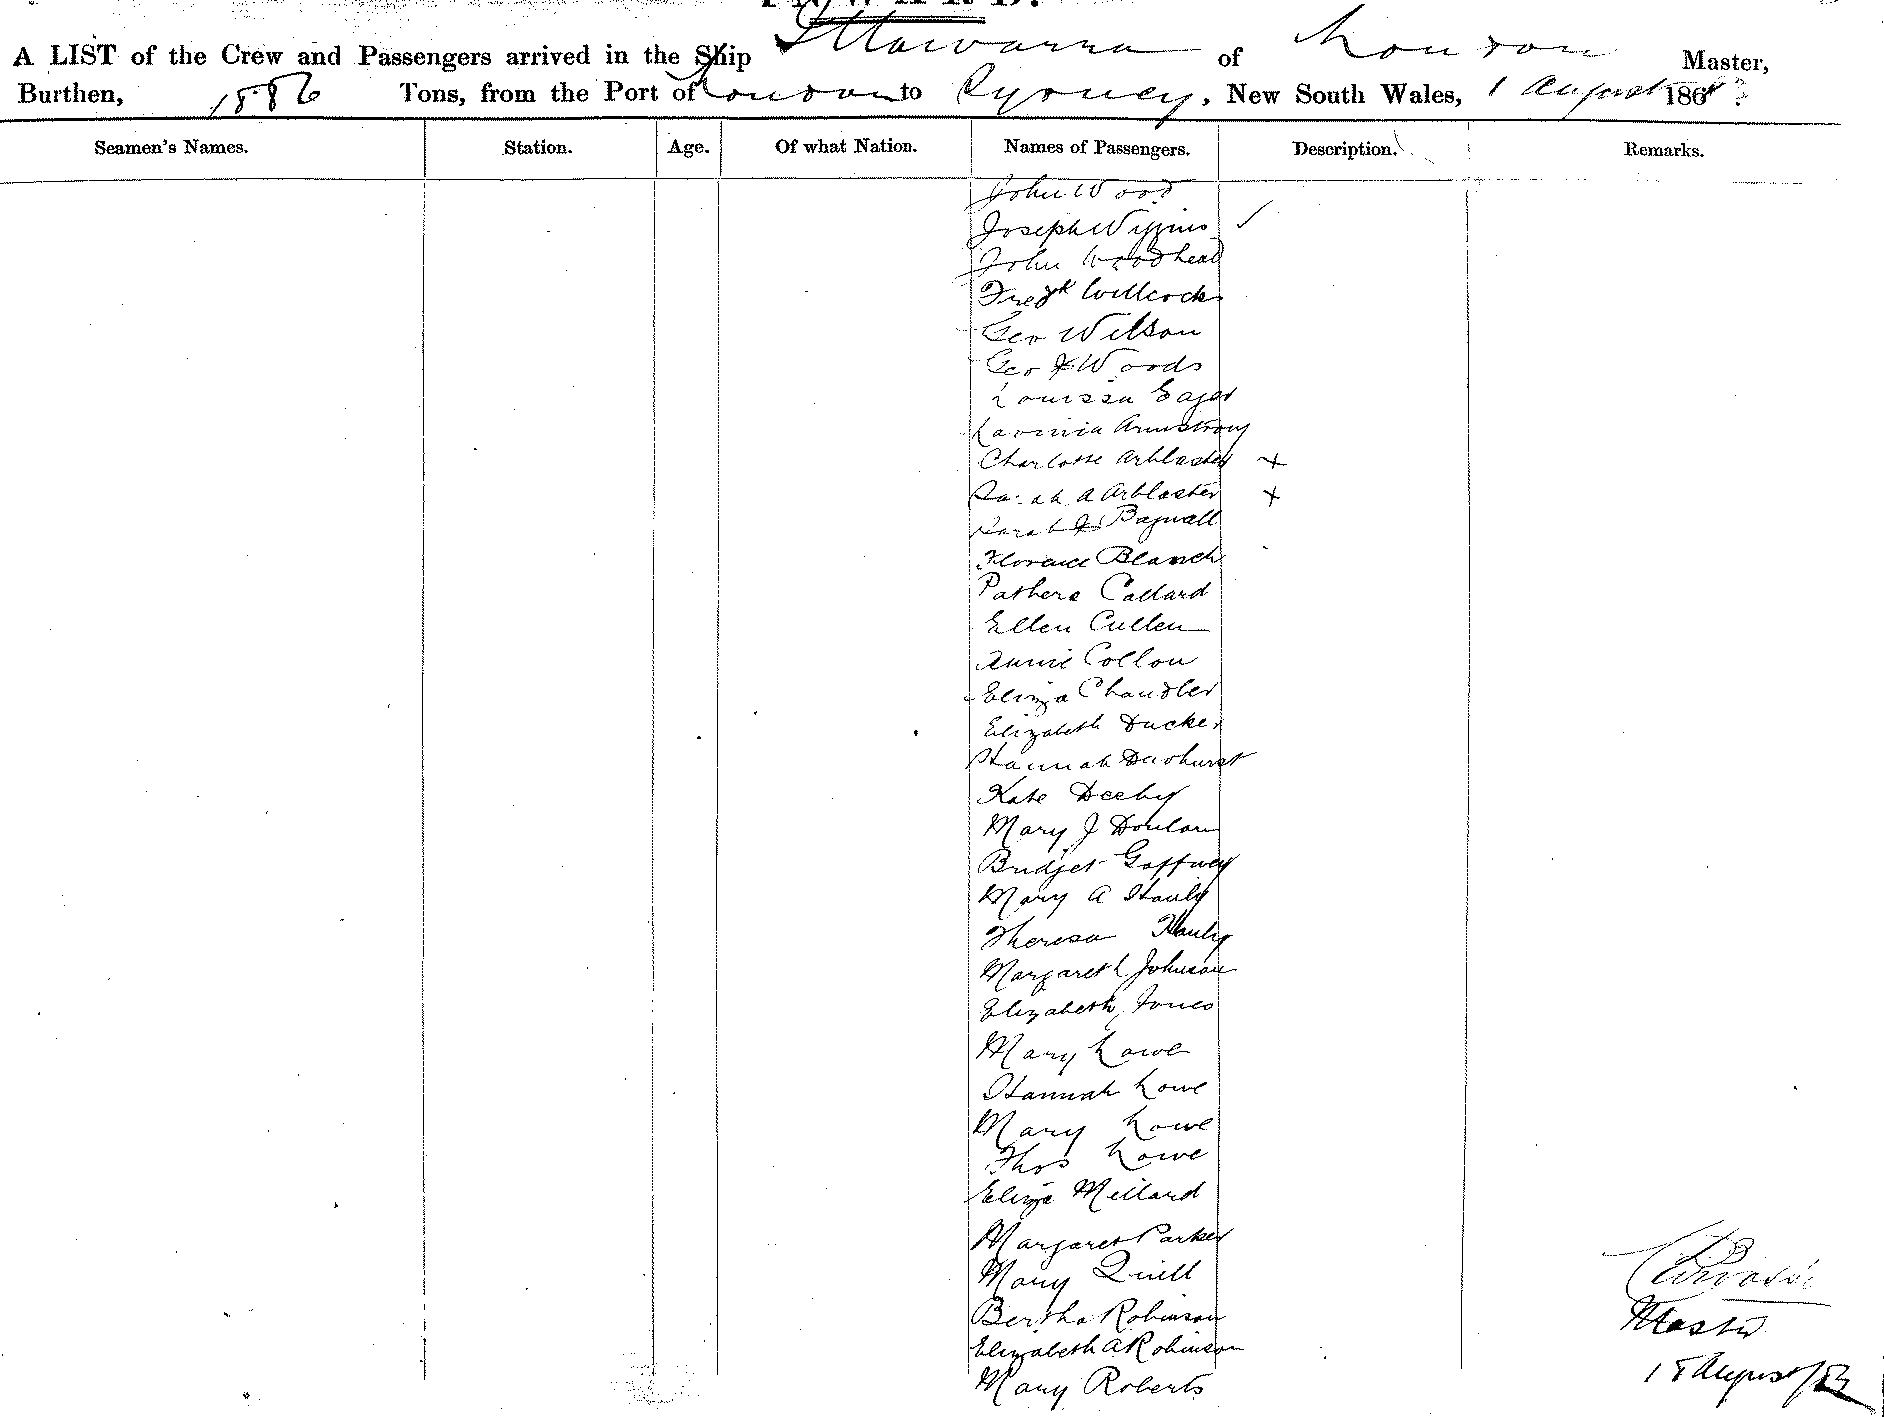 INWARD.
A LIST of the Crew and Passengers arrived in the Ship Illawarra of London Master,
Burthen, 1886 Tons, from the Port of London to Sydney, New South Wales, 1 August 188
Seamen's Names. Station. Age. Of what Nation. Names of Passengers. Description. Remarks.
John Wood
Joseph Wiggins ✓
John Woodhead
Fredk Willcock
Geo Wilson
Geo F Woods
Louissa Eager
Lavinia Armstrong
Charlotte Arblaster +
Sarah A Arblaster +
Sarah J Bagnall
Florence Blanch
Pathere Callard
Ellen Cullen
Annie Collon
Eliza Chandler
Elizabeth Ducker
Hannah Davhurst
Kate Deehy
Mary J Donlan
Bridjet Gaffney
Mary A Hauly
Theresa Hauly
Margareth Johnson
Elizabeth Jones
Mary Lowe
Hannah Lowe
Mary Lowe
Thos Lowe
Eliza Millard
Margaret Parker
Mary Quill
Bertha Robinson
Elizabeth A Robinson
Mary Roberts
Master
1 August/83